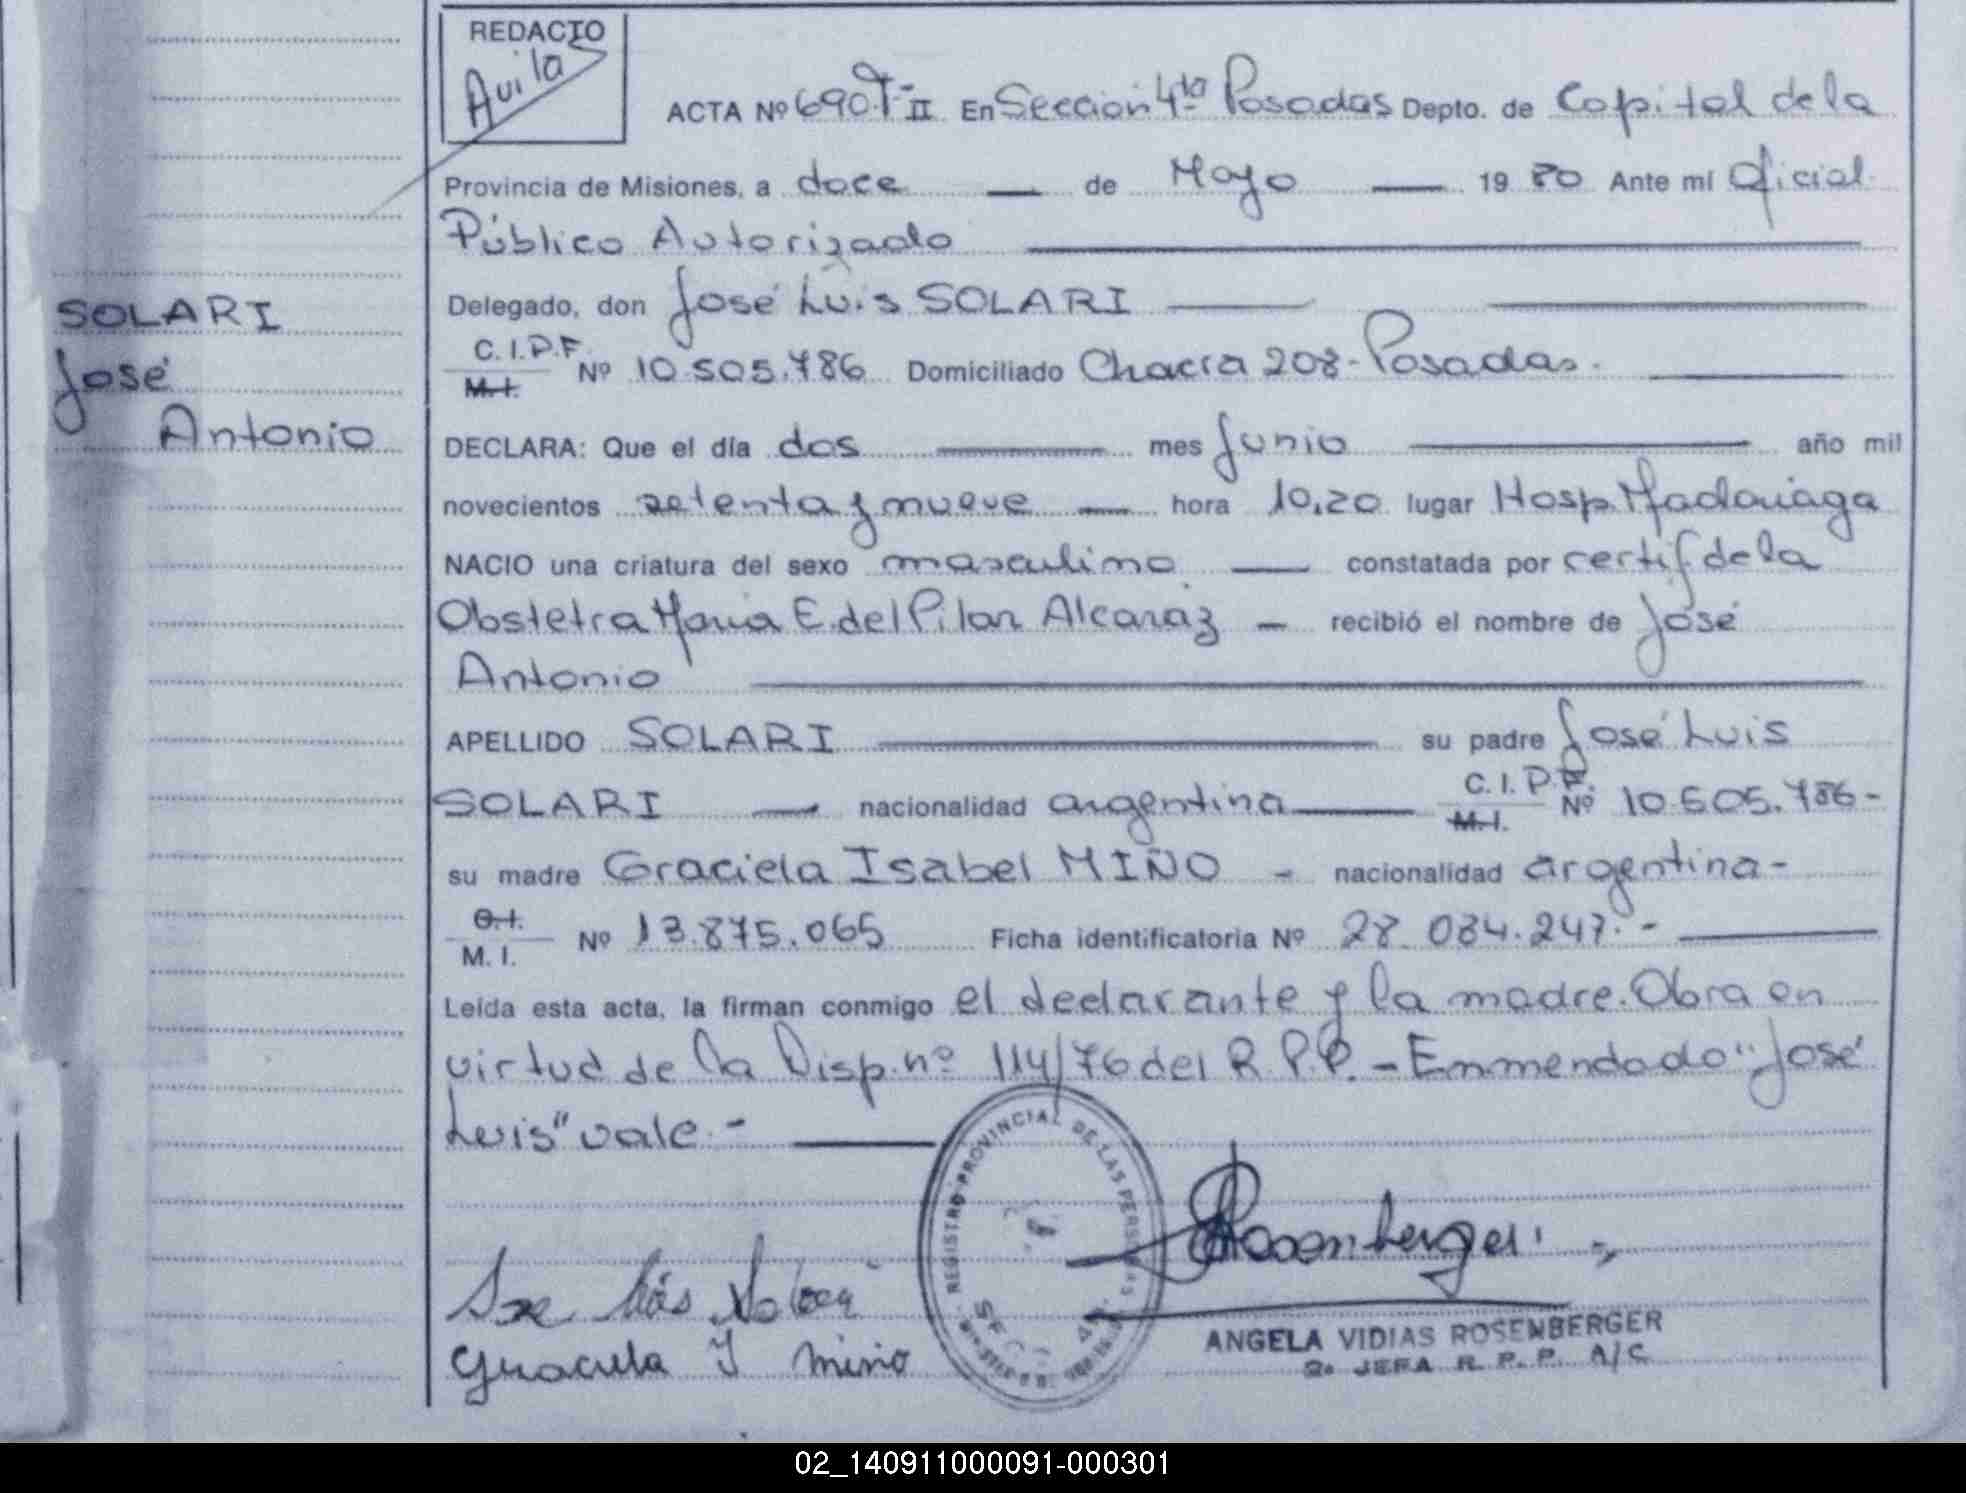 REDACTO
Avila
ACTA Nº 690 T-II En Sección 4ta Posadas Depto. de Capital de la
Provincia de Misiones, a doce de Mayo 19 80 Ante mí Oficial
Público Autorizado
Delegado, don José Luis SOLARI
SOLARI
José
Antonio
C.I.P.F. M.I. Nº 10.505.786 Domiciliado Chacra 208-Posadas.
DECLARA: Que el día dos mes Junio año mil
novecientos setenta y nueve hora 10,20 lugar Hosp. Madariaga
NACIO una criatura del sexo masculino constatada por certif de la
Obstetra María E. del Pilar Alcaraz recibió el nombre de José
Antonio
APELLIDO SOLARI su padre José Luis
SOLARI nacionalidad argentina C.I.P.F. M.I. Nº 10.505.786-
su madre Graciela Isabel MIÑO - nacionalidad argentina-
C.I. M.I. Nº 13.875.065 Ficha identificatoria Nº 28.084.247.-
Leída esta acta, la firman conmigo el declarante y la madre. Obra en
virtud de la Disp. nº 114/76 del R.P.P. - Enmendado "José
Luis" vale.-
REGISTRO PROVINCIAL DE LAS PERSONAS
Rosenberger
Graciela I miño
ANGELA VIDIAS ROSENBERGER
2a JEFA R. P. P. A/C
02_140911000091-000301